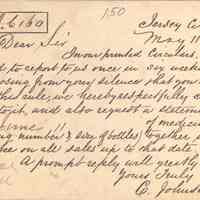 150
Jersey C
May 11
Dear Sir
In our printed Circulars,
to report to us once in six
from your silence that you
this rule, we hereby respectfully
to it, and also request a
of medicine
number & size of bottles) together
on all sales up to that date
A prompt reply will greatly
Yours Truly
C. Johns